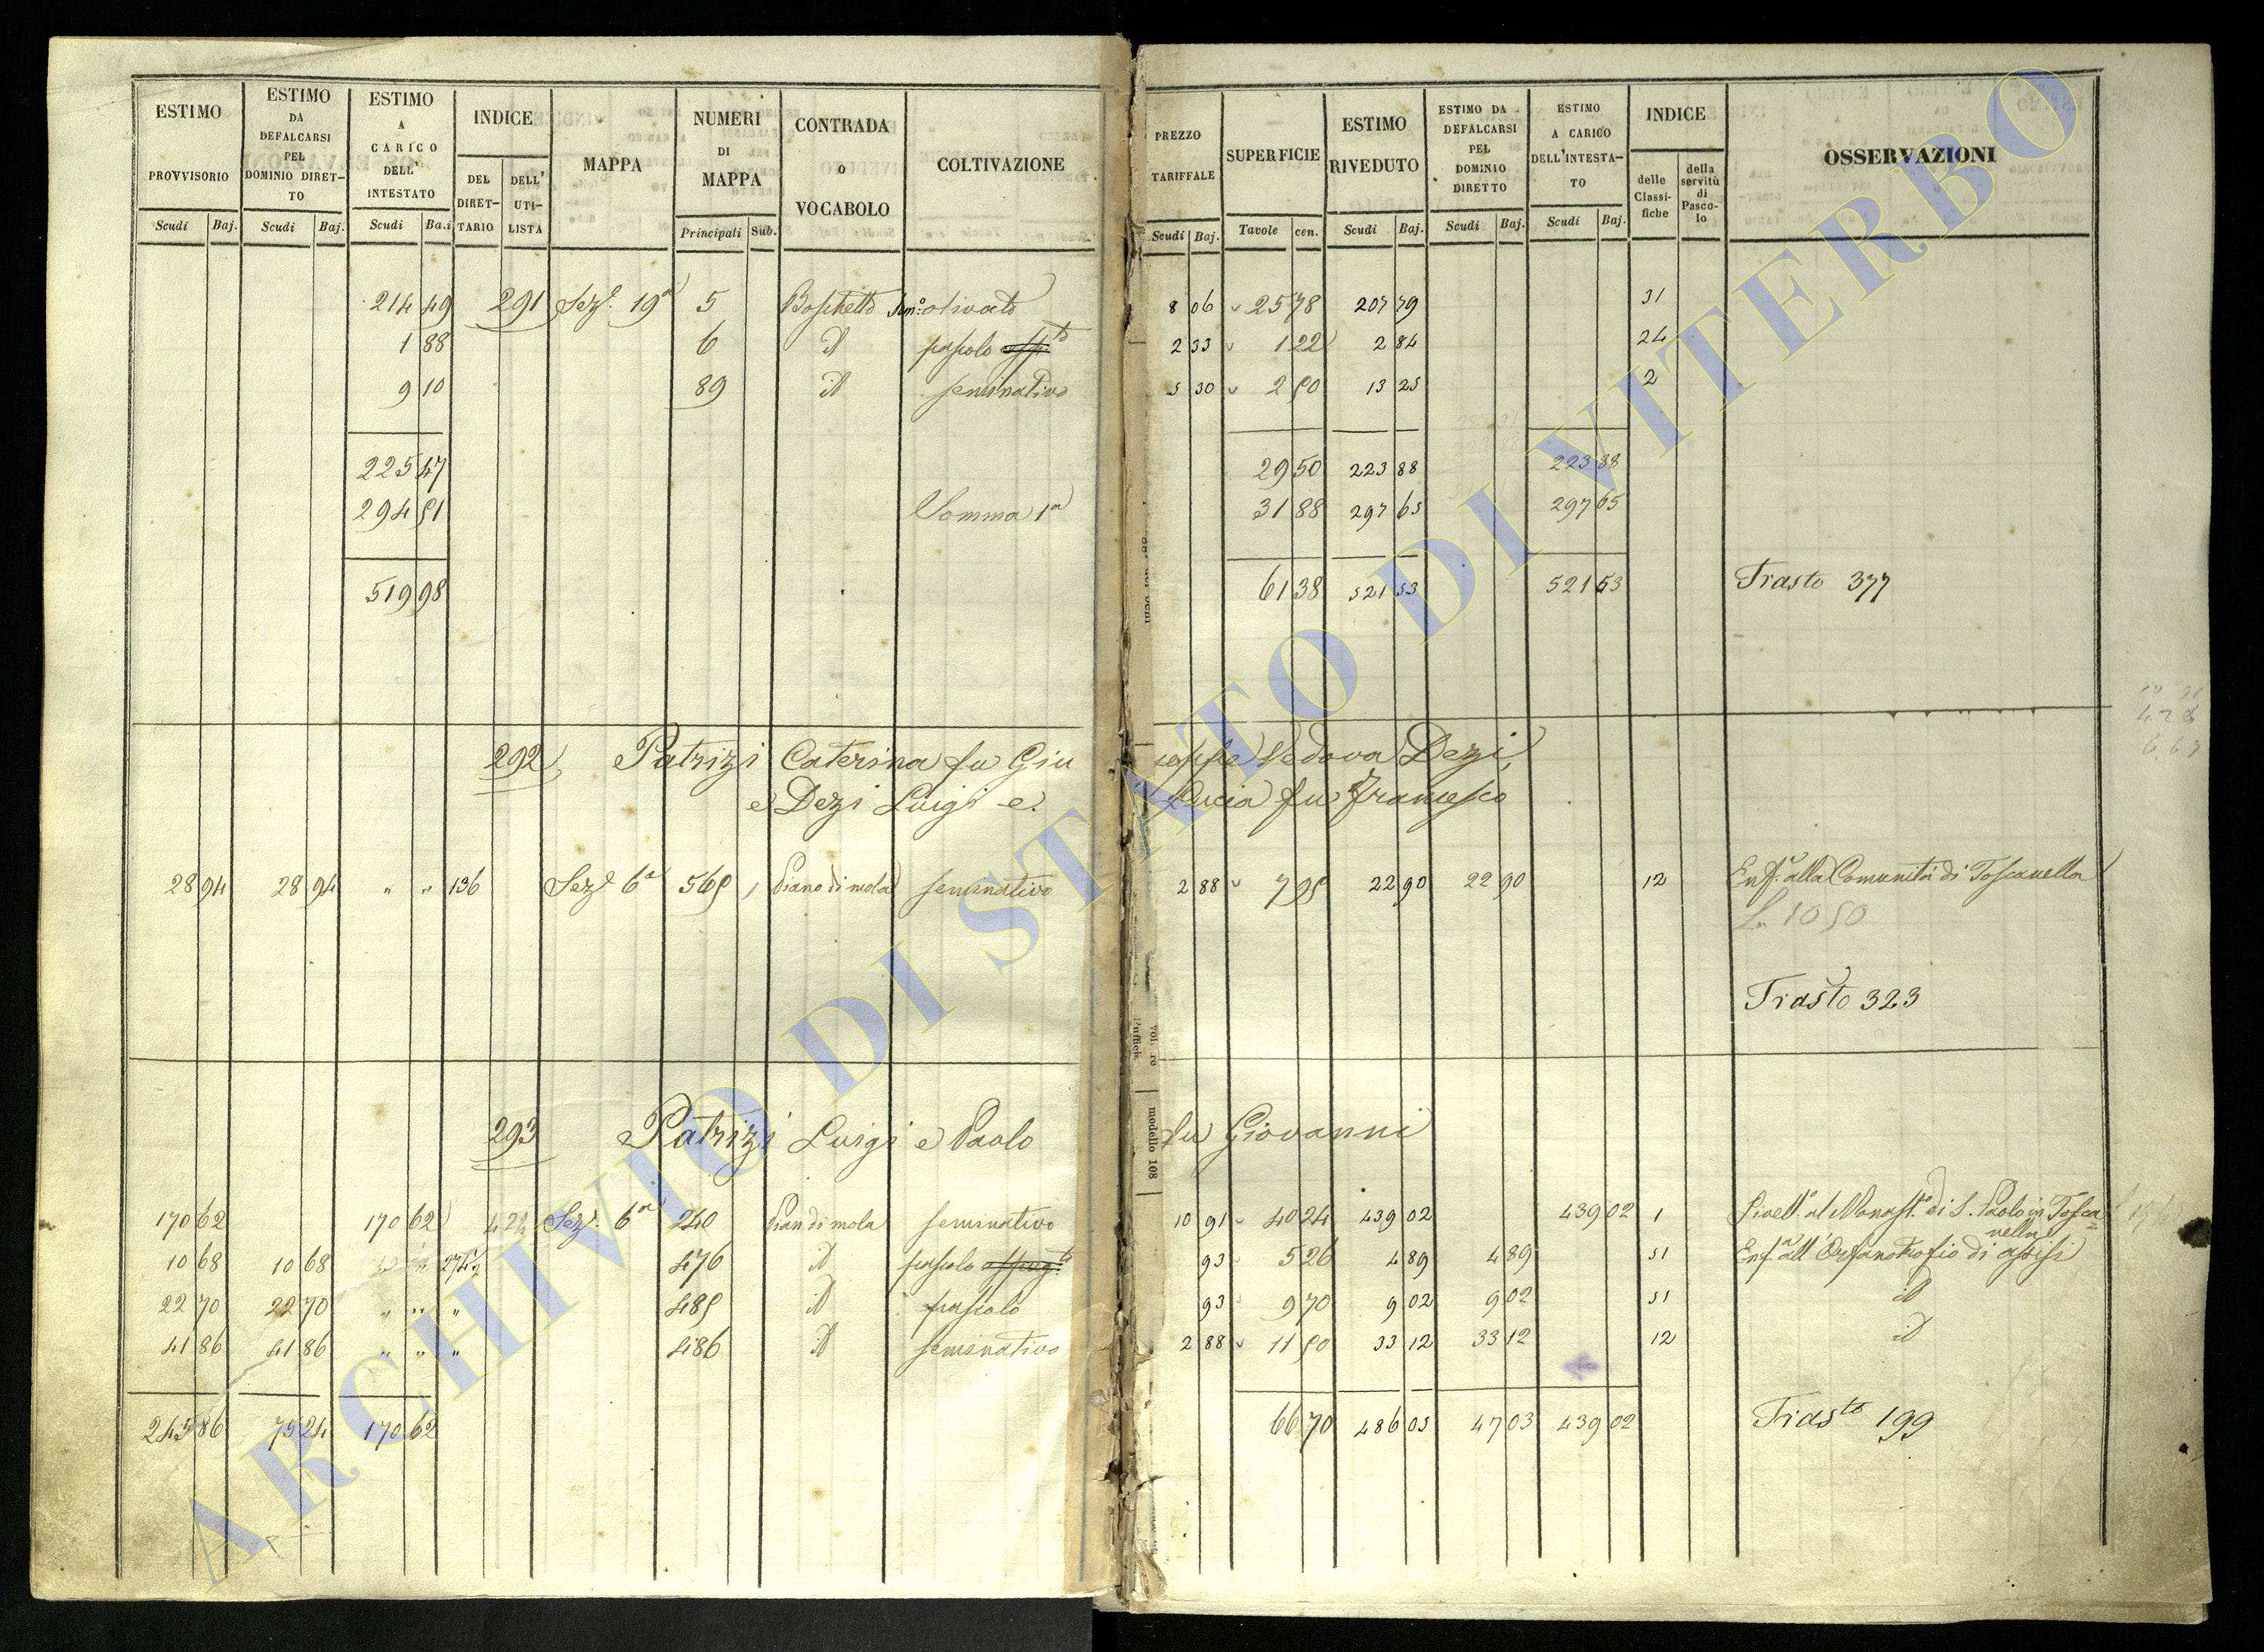 ESTIMO PROVVISORIO
ESTIMO DA DEFALCARSI PEL DOMINIO DIRETTO
ESTIMO A CARICO DELL' INTESTATO
INDICE
DEL DIRETTARIO
DELL' UTILISTA
MAPPA
NUMERI DI MAPPA
CONTRADA O VOCABOLO
COLTIVAZIONE
Scudi Baj. Scudi Baj. Scudi Ba.i Principali Sub.
PREZZO TARIFFALE
SUPERFICIE
ESTIMO RIVEDUTO
ESTIMO DA DEFALCARSI PEL DOMINIO DIRETTO
ESTIMO A CARICO DELL'INTESTATO
INDICE
delle Classifiche
della servitù di Pascolo
OSSERVAZIONI
Scudi Baj. Tavole cen. Scudi Baj. Scudi Baj. Scudi Baj.
214 49 291 Sez.e 19a 5 Boschetto Sem.o olivato 8 06 25 78 207 79 31
1 88 6 id pascolo 2 33 1 22 2 84 24
9 10 89 id seminativo 5 30 2 50 13 25 2
225 47 29 50 223 88 223 88
294 51 Somma 1a 31 88 297 65 297 65
519 98 61 38 521 53 521 53 Trasto 377
292 Patrizi Caterina fu Giuseppe Vedova Dezi,
e Dezi Luigi e Lucia fu Francesco
28 94 28 94 " " 136 Sez.e 6a 565 1 Piano di mola seminativo 2 88 7 95 22 90 22 90 12 Enf.a alla Comunità di Toscanella
L. 10 50
Trasto 323
293 Patrizi Luigi e Paolo fu Giovanni
170 62 170 62 424 Sez.e 6a 240 Pian di mola seminativo 10 91 40 24 439 02 439 02 1 Livell.o al Monast.o di S. Paolo in Toscanella
10 68 10 68 " " 274½ 476 id pascolo 93 5 26 4 89 4 89 51 Enf.a all' Orfanotrofio di assisi
22 70 22 70 " " " 485 id pascolo 93 9 70 9 02 9 02 51 id
41 86 41 86 " " " 486 id seminativo 2 88 11 50 33 12 33 12 12 id
245 86 75 24 170 62 66 70 486 05 47 03 439 02 Trasto 199
modello 108
ARCHIVIO DI STATO DI VITERBO